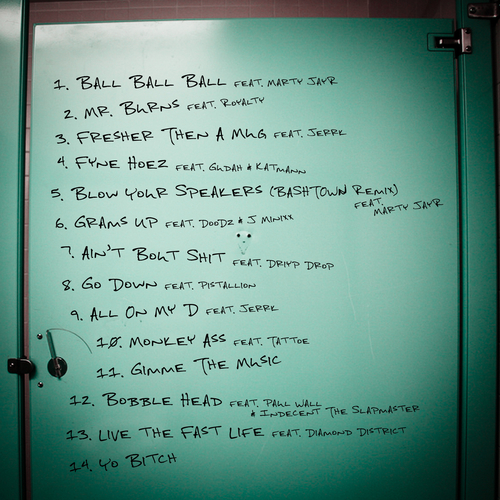 1. BALL BALL BALL FEAT. MARTY JAYR
2. MR. BURNS FEAT. ROYALTY
3. FRESHER THEN A MUG FEAT. JERRK
4. FYNE HOEZ FEAT. GUDAH & KATMANN
5. BLOW YOUR SPEAKERS (BASHTOWN REMIX)
FEAT. MARTY JAYR
6. GRAMS UP FEAT. DOODZ & J MINIXX
7. AIN'T BOUT SHIT FEAT. DRIYP DROP
8. GO DOWN FEAT. PISTALLION
9. ALL ON MY D FEAT. JERRK
10. MONKEY ASS FEAT. TATTOE
11. GIMME THE MUSIC
12. BOBBLE HEAD FEAT. PAUL WALL
& INDECENT THE SLAPMASTER
13. LIVE THE FAST LIFE FEAT. DIAMOND DISTRICT
14. YO BITCH